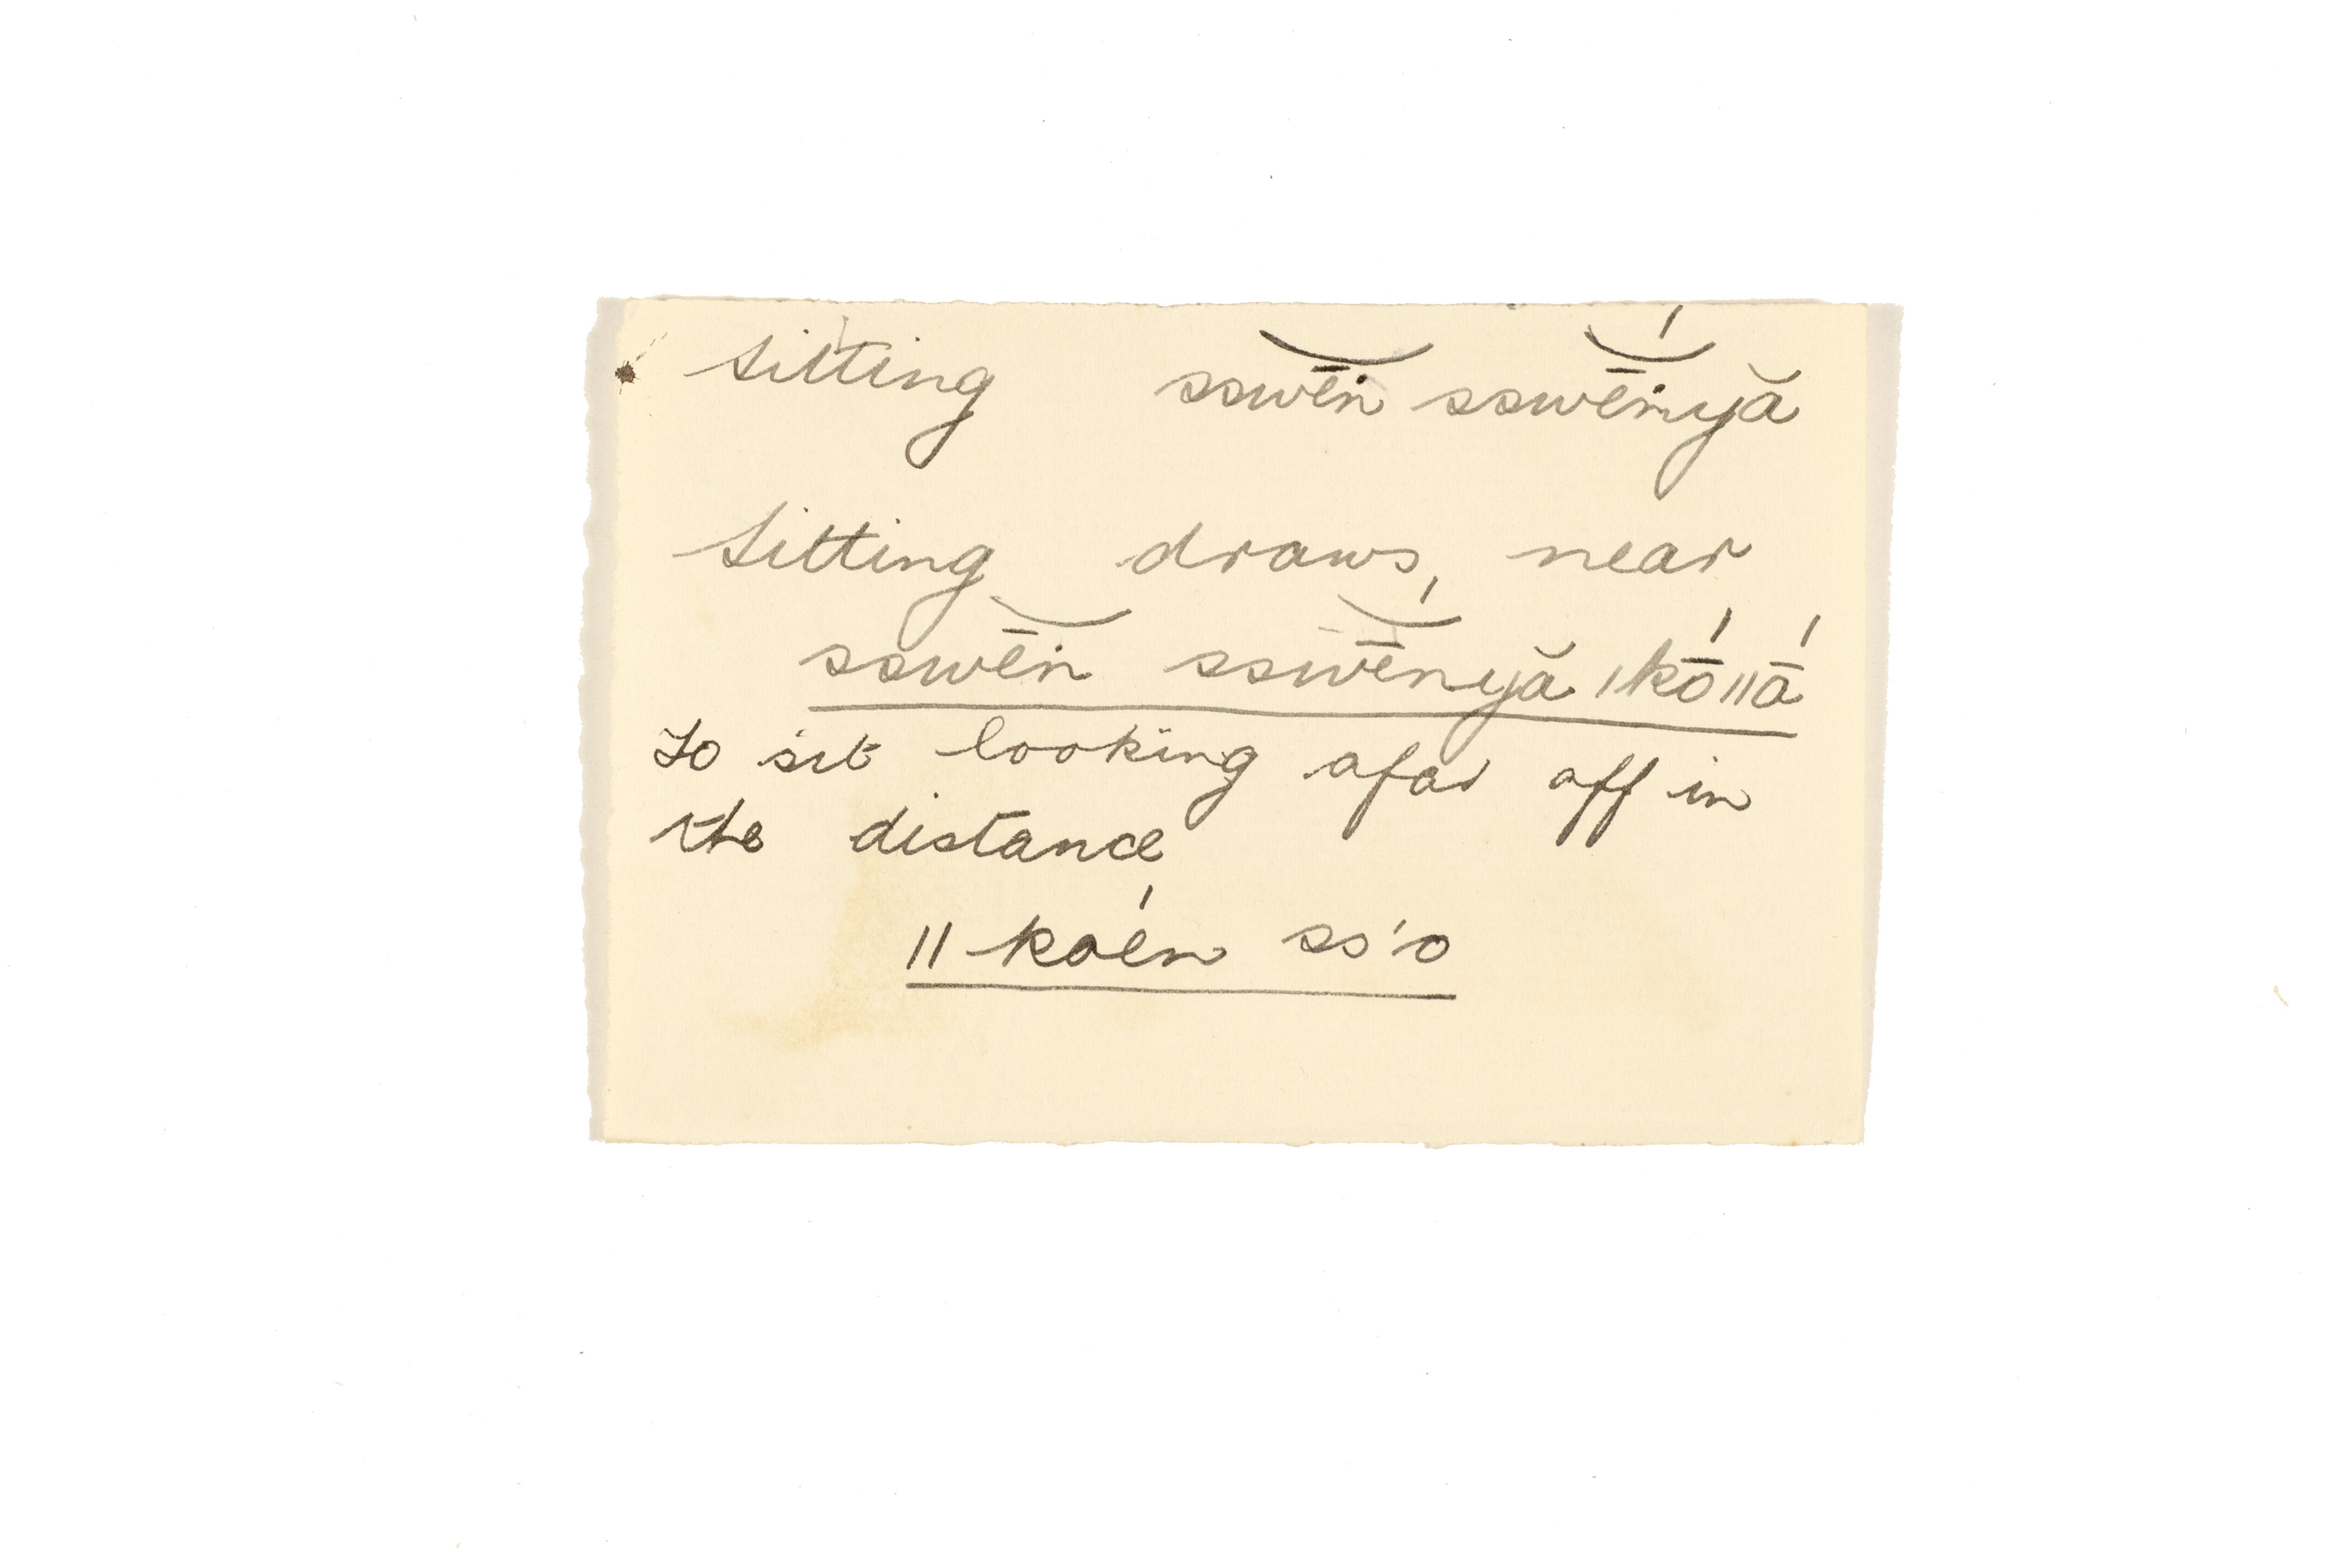 sitting sswē̆n sswē̆́nyă
sitting draws, near
sswē̆n sswē̆́nyă |kṓ||ā́
to sit looking afar off in
the distance
||koén ss'o